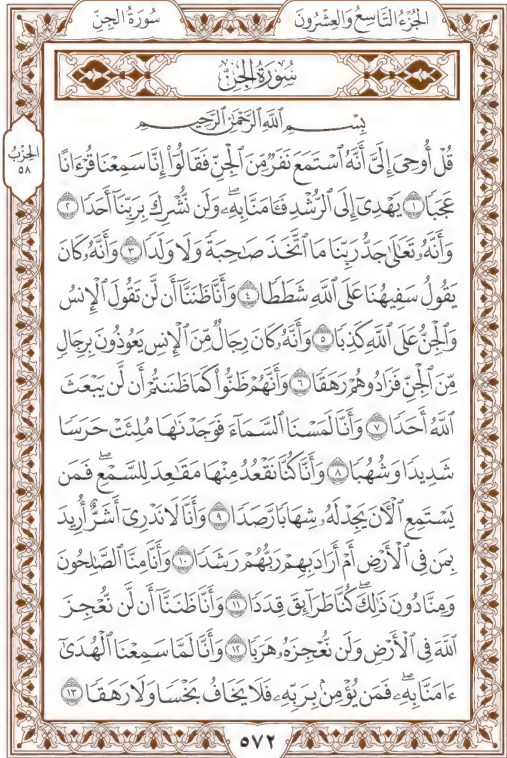 سُورَةُ الجِنِّ
الجُزْءُ التَّاسِعُ وَالعِشْرُونَ
سُورَةُ الجِنِّ
بِسْمِ ٱللَّهِ ٱلرَّحْمَٰنِ ٱلرَّحِيمِ
الحِزْبُ
٥٨
قُلْ أُوحِىَ إِلَىَّ أَنَّهُ ٱسْتَمَعَ نَفَرٌ مِّنَ ٱلْجِنِّ فَقَالُوٓا۟ إِنَّا سَمِعْنَا قُرْءَانًا
عَجَبًا ١ يَهْدِىٓ إِلَى ٱلرُّشْدِ فَـَٔامَنَّا بِهِۦ ۖ وَلَن نُّشْرِكَ بِرَبِّنَآ أَحَدًا ٢
وَأَنَّهُۥ تَعَٰلَىٰ جَدُّ رَبِّنَا مَا ٱتَّخَذَ صَٰحِبَةً وَلَا وَلَدًا ٣ وَأَنَّهُۥ كَانَ
يَقُولُ سَفِيهُنَا عَلَى ٱللَّهِ شَطَطًا ٤ وَأَنَّا ظَنَنَّآ أَن لَّن تَقُولَ ٱلْإِنسُ
وَٱلْجِنُّ عَلَى ٱللَّهِ كَذِبًا ٥ وَأَنَّهُۥ كَانَ رِجَالٌ مِّنَ ٱلْإِنسِ يَعُوذُونَ بِرِجَالٍ
مِّنَ ٱلْجِنِّ فَزَادُوهُمْ رَهَقًا ٦ وَأَنَّهُمْ ظَنُّوا۟ كَمَا ظَنَنتُمْ أَن لَّن يَبْعَثَ
ٱللَّهُ أَحَدًا ٧ وَأَنَّا لَمَسْنَا ٱلسَّمَآءَ فَوَجَدْنَٰهَا مُلِئَتْ حَرَسًا
شَدِيدًا وَشُهُبًا ٨ وَأَنَّا كُنَّا نَقْعُدُ مِنْهَا مَقَٰعِدَ لِلسَّمْعِ ۖ فَمَن
يَسْتَمِعِ ٱلْـَٔانَ يَجِدْ لَهُۥ شِهَابًا رَّصَدًا ٩ وَأَنَّا لَا نَدْرِىٓ أَشَرٌّ أُرِيدَ
بِمَن فِى ٱلْأَرْضِ أَمْ أَرَادَ بِهِمْ رَبُّهُمْ رَشَدًا ١٠ وَأَنَّا مِنَّا ٱلصَّٰلِحُونَ
وَمِنَّا دُونَ ذَٰلِكَ ۖ كُنَّا طَرَآئِقَ قِدَدًا ١١ وَأَنَّا ظَنَنَّآ أَن لَّن نُّعْجِزَ
ٱللَّهَ فِى ٱلْأَرْضِ وَلَن نُّعْجِزَهُۥ هَرَبًا ١٢ وَأَنَّا لَمَّا سَمِعْنَا ٱلْهُدَىٰٓ
ءَامَنَّا بِهِۦ ۖ فَمَن يُؤْمِنۢ بِرَبِّهِۦ فَلَا يَخَافُ بَخْسًا وَلَا رَهَقًا ١٣
٥٧٢